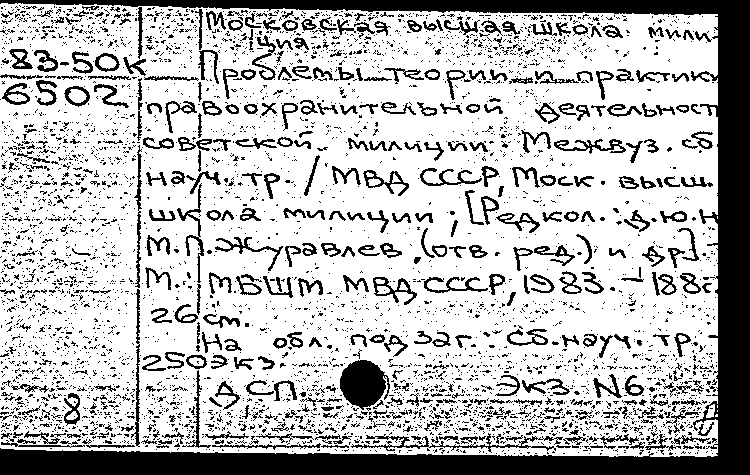 Московская высшая школа мили-
ция
83-50к
Проблемы теории и практики
6502
правоохранительной деятельност
советской милиции: Межвуз. сб.
науч. тр. / МВД СССР, Моск. высш.
школа милиции; [Редкол.: д.ю.н
М.П. Журавлев (отв. ред.) и др]. -
М.: МВШМ МВД СССР, 1983. - 188с.
26 см.
На обл. подзаг.: Сб. науч. тр. -
250 экз.
ДСП. Экз. N6.
8